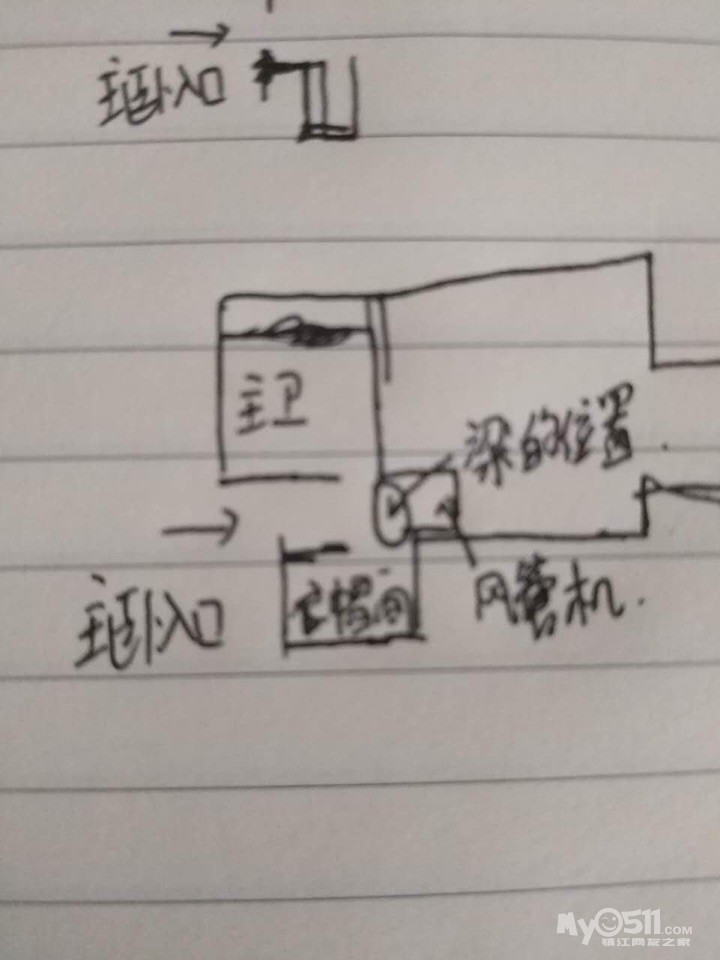 主卧入口
主卫
梁的位置.
衣帽间
风管机.
主卧入口
My0511.COM
镇江网友之家